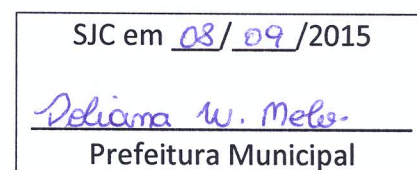 SJC em 08/09/2015
Doliana W. Melo.
Prefeitura Municipal